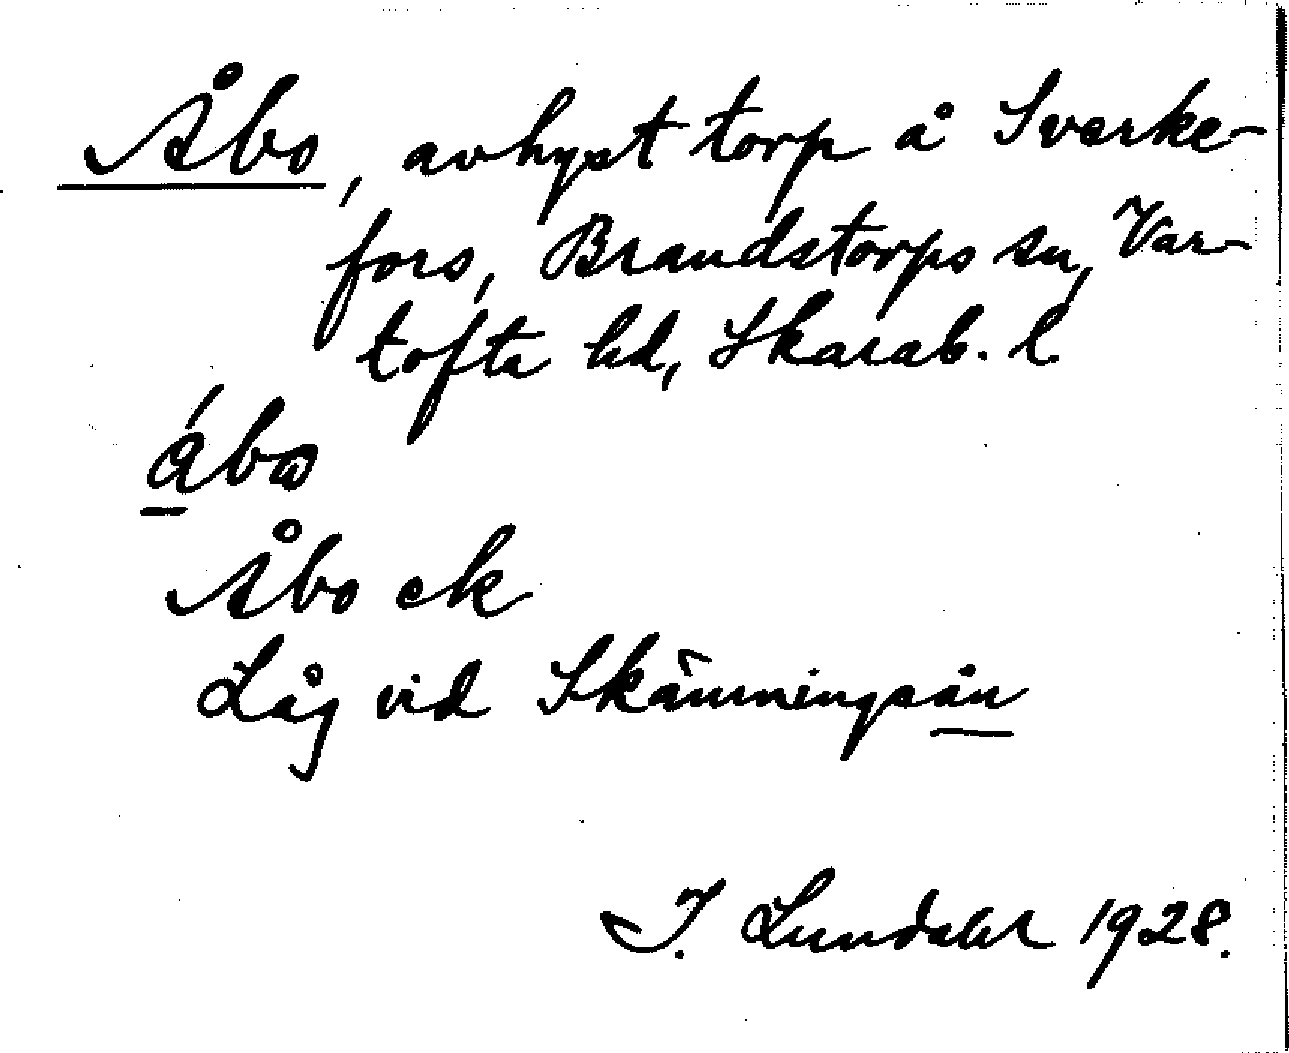 Åbo, avhyst torp å Sverke-
fors, Brandstorps sn, Var-
tofta hd, Skarab. l
Åbo ek
Låg vid Skämningsån
I. Lundahl 1928.